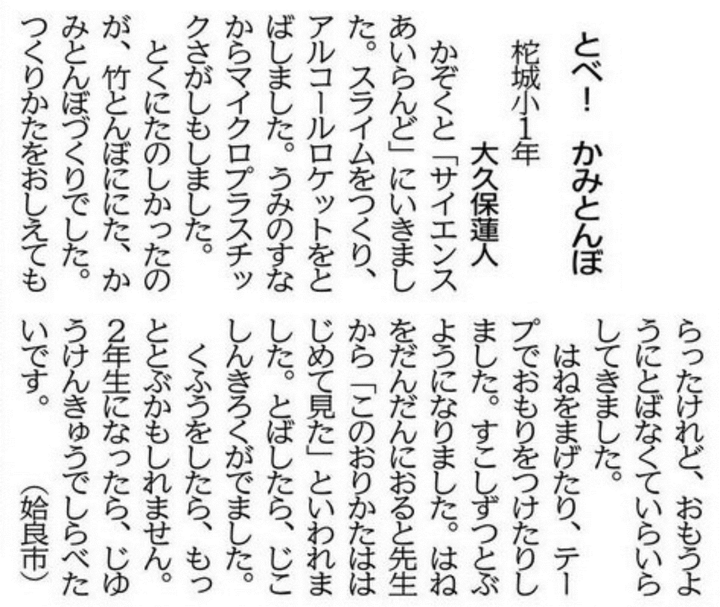 とべ！　かみとんぼ
柁城小１年
大久保蓮人
　かぞくと「サイエンス
あいらんど」にいきまし
た。スライムをつくり、
アルコールロケットをと
ばしました。うみのすな
からマイクロプラスチッ
クさがしもしました。
　とくにたのしかったの
が、竹とんぼににた、か
みとんぼづくりでした。
つくりかたをおしえても
らったけれど、おもうよ
うにとばなくていらいら
してきました。
　はねをまげたり、テー
プでおもりをつけたりし
ました。すこしずつとぶ
ようになりました。はね
をだんだんにおると先生
から「このおりかたはは
じめて見た」といわれま
した。とばしたら、じこ
しんきろくがでました。
　くふうをしたら、もっ
ととぶかもしれません。
２年生になったら、じゆ
うけんきゅうでしらべた
いです。　　（姶良市）